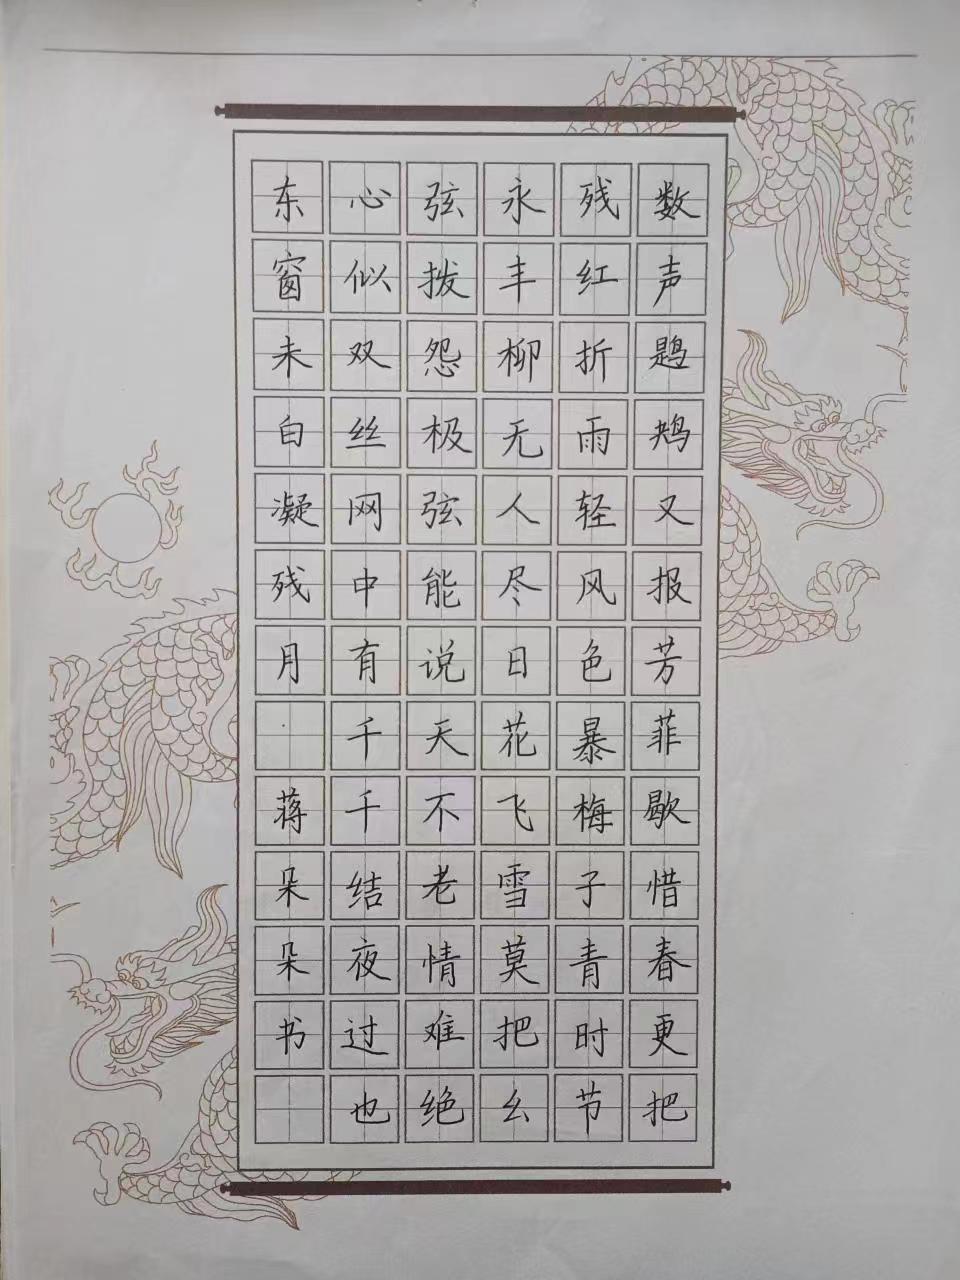 数声鹍鸠又报芳菲歇惜春更把
残红折雨轻风色暴梅子青时节
永丰柳无人尽日花飞雪莫把幺
弦拨怨极弦能说天不老情难绝
心似双丝网中有千千结夜过也
东窗未白凝残月
蒋朵朵书